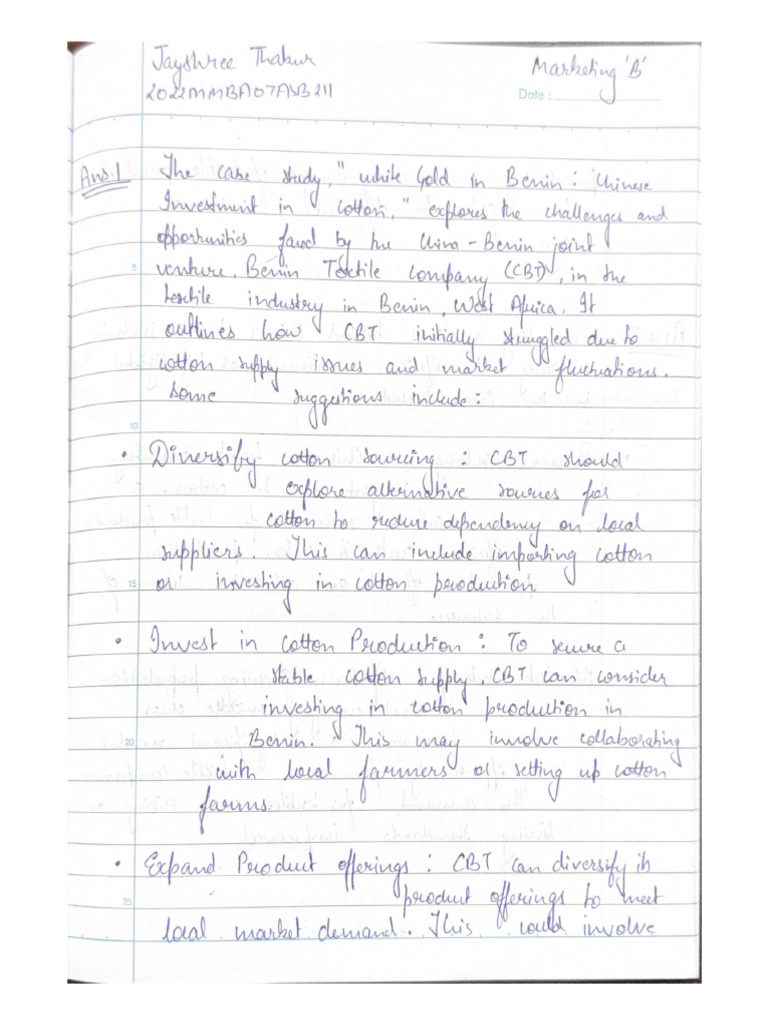 Jayshree Thakur
Marketing 'B'
2022MMBA07ASB211
Date :
Ans.1 The case study, "white Gold in Benin : Chinese
Investment in cotton," explores the challenges and
opportunities faced by the China-Benin joint
5 venture, Benin Textile Company (CBT), in the
textile industry in Benin, West Africa. It
outlines how CBT initially struggled due to
cotton supply issues and market fluctuations.
Some suggestions include :
10
• Diversify cotton sourcing : CBT should
explore alternative sources for
cotton to reduce dependency on local
suppliers. This can include importing cotton
15 or investing in cotton production
• Invest in cotton Production : To secure a
stable cotton supply, CBT can consider
investing in cotton production in
20 Benin. This may involve collaborating
with local farmers or setting up cotton
farms.
• Expand Product offerings : CBT can diversify its
25 product offerings to meet
local market demand. This could involve